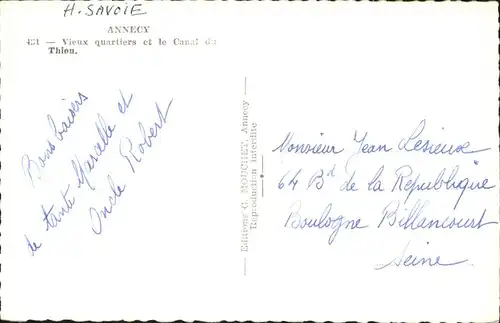 H. SAVOIE
ANNECY
431 — Vieux quartiers et le Canal du
Thiou.
Bons baisers
de tante Marcelle et
Oncle Robert
Editions G. MOUCHET, Annecy
Reproduction interdite
Monsieur Jean Lesieux
64 Bd de la République
Boulogne Billancourt
Seine.